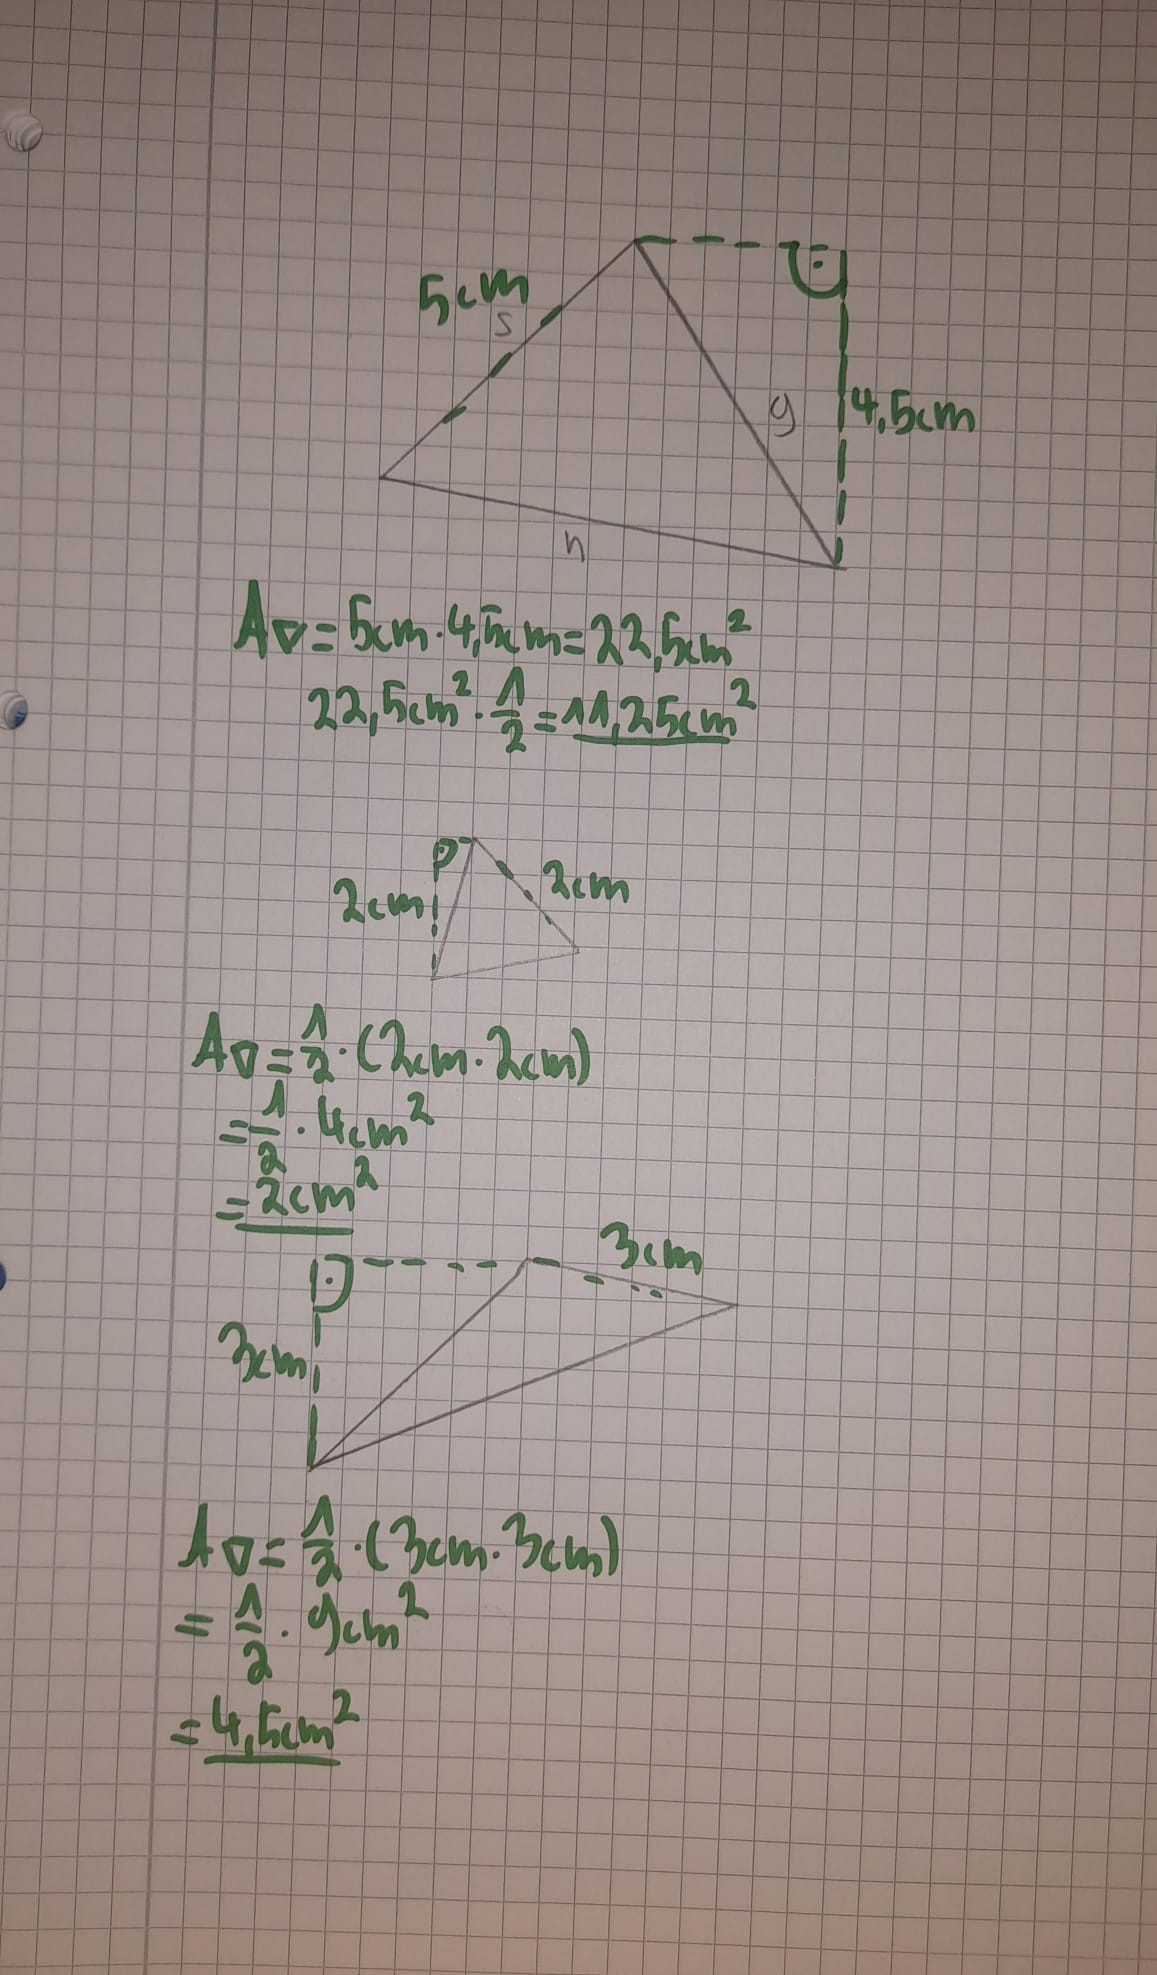 5cm
s
g
4,5cm
h
A▽=5cm·4,5cm=22,5cm²
22,5cm²·1/2=11,25cm²
2cm
2cm
A▽=1/2·(2cm·2cm)
=1/2·4cm²
=2cm²
3cm
3cm
A▽=1/2·(3cm·3cm)
=1/2·9cm²
=4,5cm²